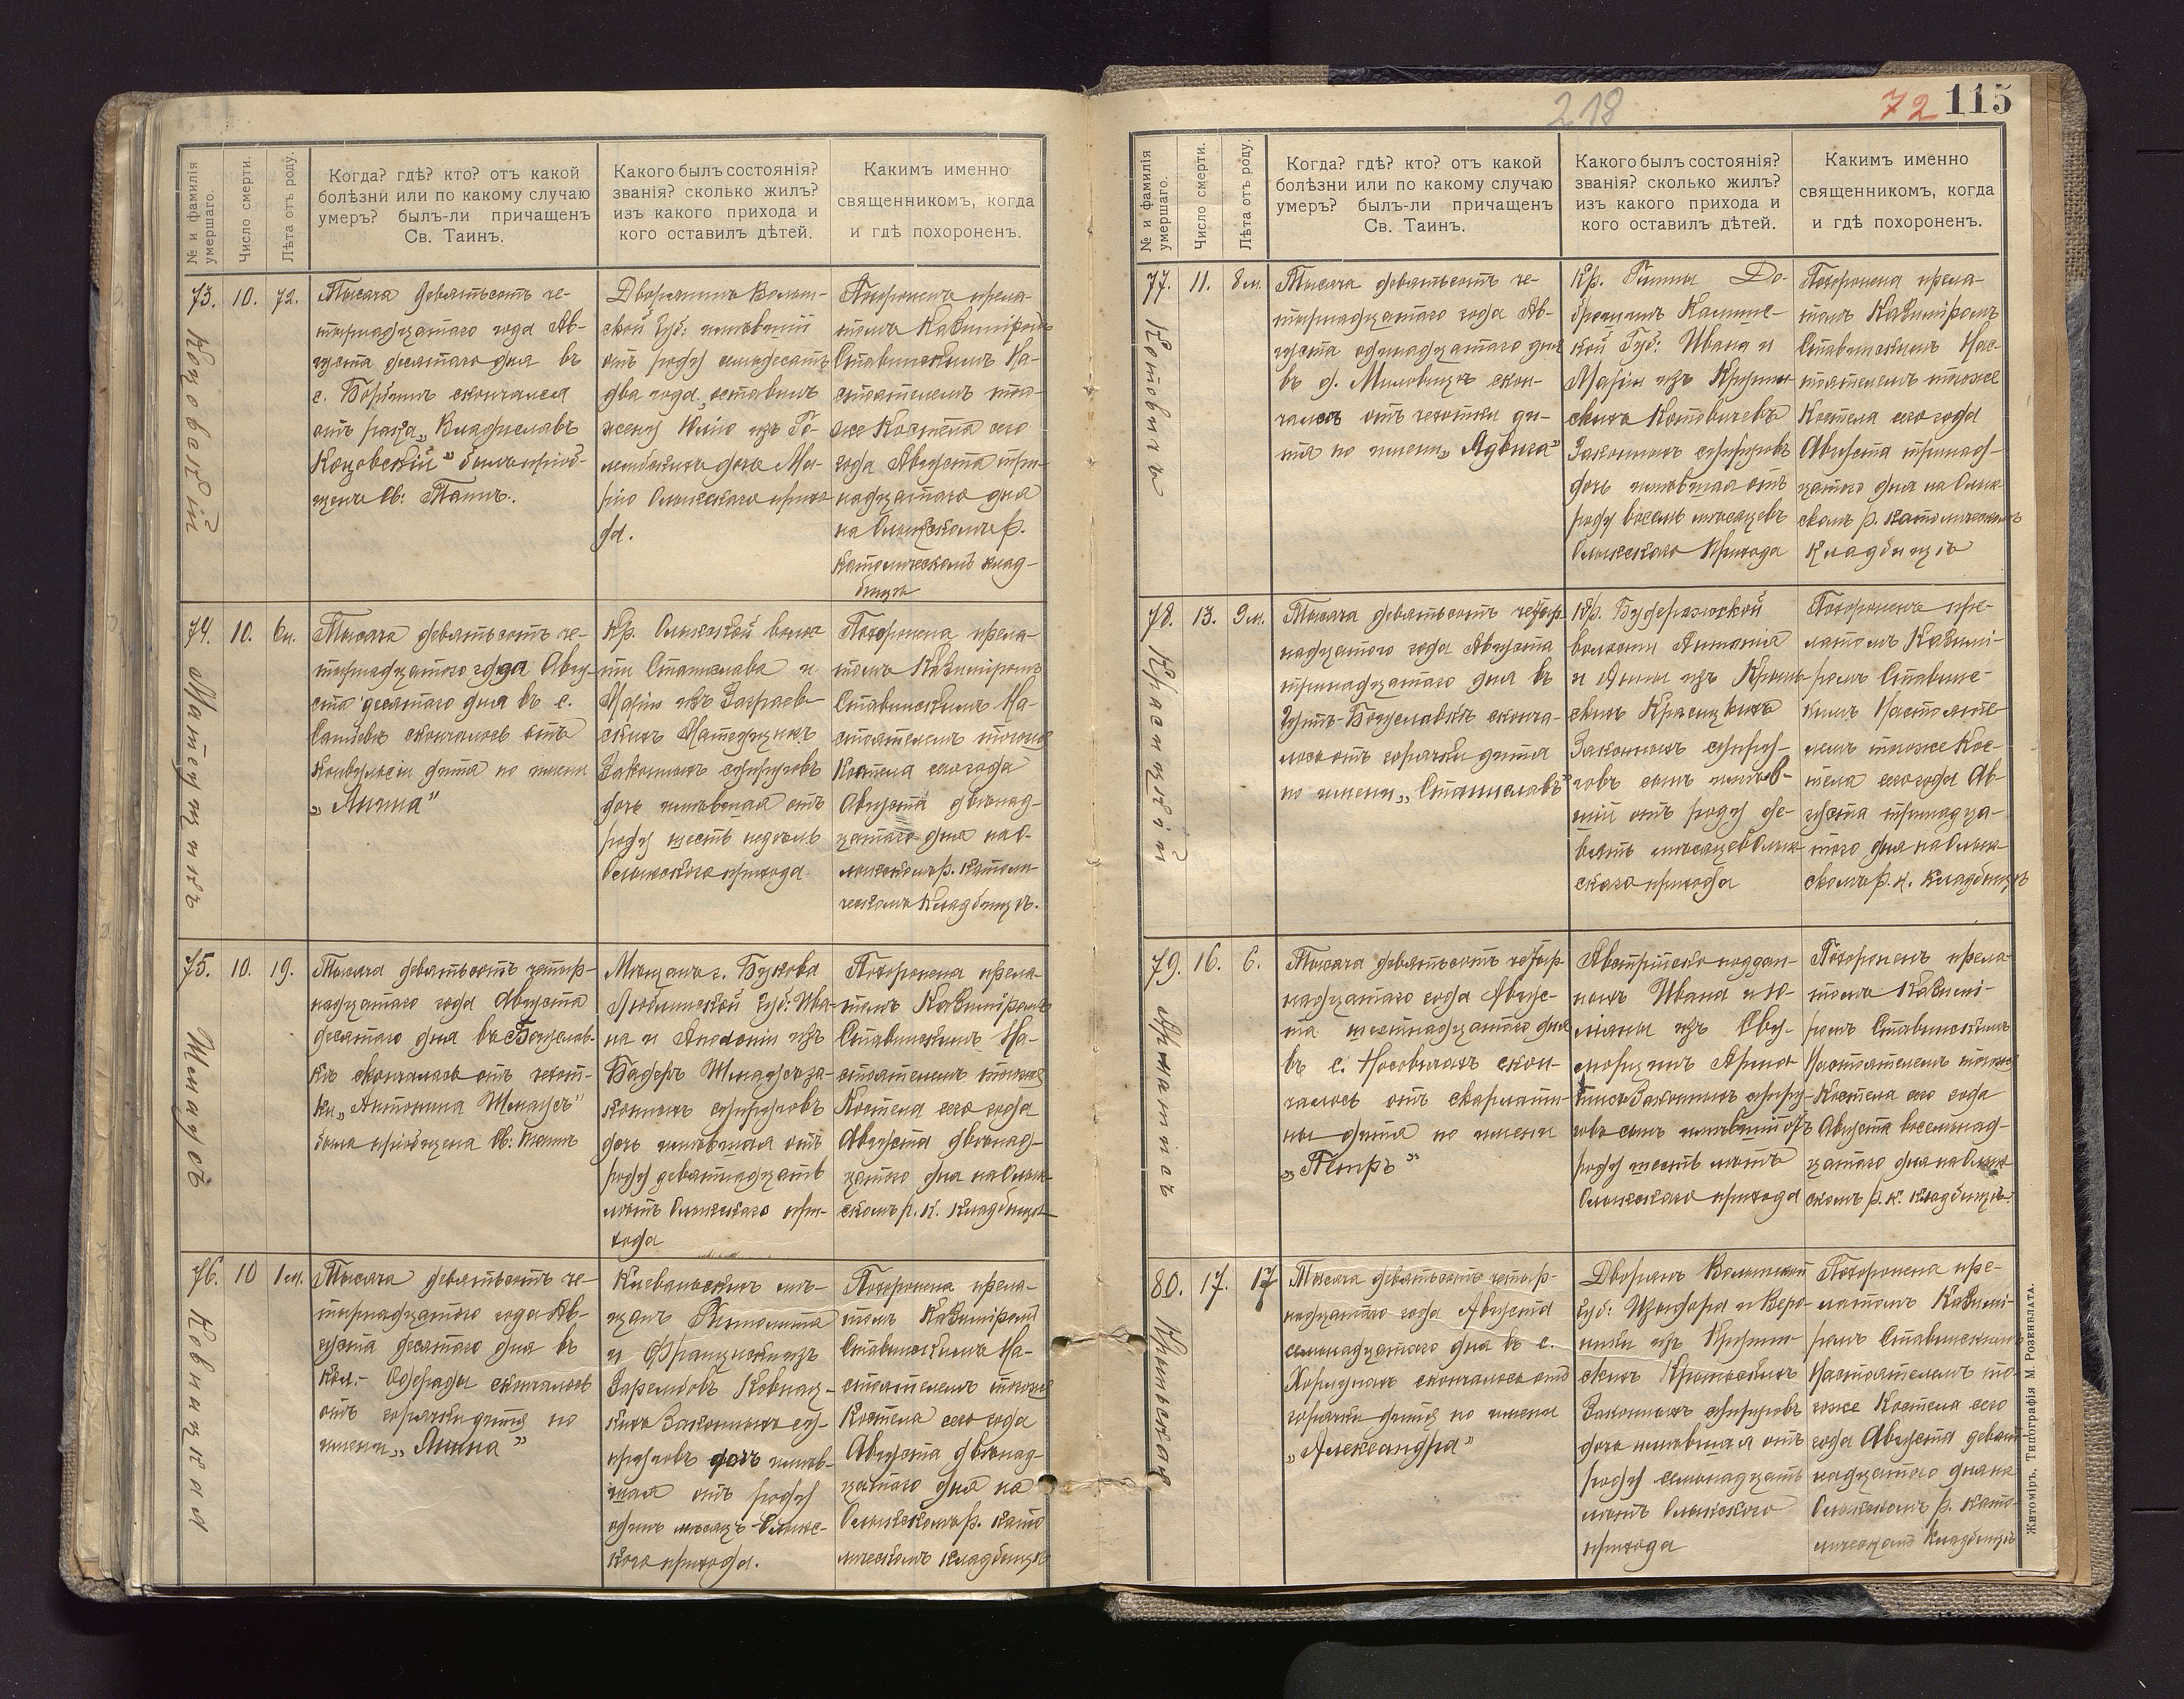 № и фамилія умершаго.
Число смерти.
Лѣта отъ роду.
Когда? гдѣ? кто? отъ какой
болѣзни или по какому случаю
умеръ? былъ-ли причащенъ
Св. Таинъ.
Какого былъ состоянія?
званія? сколько жилъ?
изъ какого прихода и
кого оставилъ дѣтей.
Какимъ именно
священникомъ, когда
и гдѣ похороненъ.
73. Коцовскій
10.
72.
Тысяча девятьсотъ че-
тырнадцатаго года Ав-
густа десятаго дня въ
с. скончался
отъ рака „Владиславъ
Коцовскій" былъ пріоб-
щенъ Св: Таинъ.
Дворянинъ Волын-
ской Губ: имѣвшій
отъ роду семьдесятъ
два года, оставилъ
жену изъ Го-
дочь Ма-
рію Олыкскаго прихо-
да.
Похороненъ прела-
томъ Казимiромъ
Ставинскимъ На-
стоятелемъ то-
же Костела сего
года Августа три-
надцатаго дня
на Олыкскомъ р.
католическомъ клад-
бищѣ
74.
10.
6 н.
Тысяча девятьсотъ че-
тырнадцатаго года Авгу-
ста десятаго дня въ с.
скончалось отъ
Конвульсіи дитя по имени
„Анна"
Кр. Олыкской волос-
ти Станислава и
Маріи изъ
Законныхъ супруговъ
дочь имѣвшая отъ
роду шесть недѣль
Олыкскаго прихода
Похоронена прела-
томъ Казимiромъ
Ставинскимъ На-
стоятелемъ тогоже
Костела сего года
Августа двѣнад-
цатаго дня на О-
лыкскомъ р. Католи-
ческомъ Кладбищѣ.
75. Шмаусъ
10.
19.
Тысяча девятьсотъ четыр-
надцатаго года Августа
десятаго дня въ Богуслав-
кѣ скончалась отъ чахот-
ки „Антонина Шмаусъ"
была пріобщена Св: Таинъ
Мѣщанъ г.
Люблинской Губ: Ива-
на и Аполоніи изъ
Шмаусъ за-
конныхъ супруговъ
дочь имѣвшая отъ
роду девятнадцать
лѣтъ Олыкскаго при-
хода
Похоронена прела-
томъ Казимiромъ
Ставинскимъ На-
стоятелемъ тогоже
Костела сего года
Августа двѣнад-
цатаго дня на Олык-
скомъ р. К. Кладбищѣ
76. Ковнацкая
10
1 м.
Тысяча девятьсотъ че-
тырнадцатаго года Ав-
густа десятаго дня въ
Кол:- Одерады скончалось
отъ горячки дитя по
имени „Анна"
Клеванскихъ мѣ-
щанъ
и Франциски изъ
Ковнац-
кихъ Законныхъ су-
пруговъ дочь имѣв-
шая отъ роду
одинъ мѣсяцъ Олыкс-
каго прихода.
Похоронена прела-
томъ Казимiромъ
Ставинскимъ На-
стоятелемъ тогоже
Костела сего года
Августа двѣнад-
цатаго дня на
Олыкскомъ р. като-
лическомъ кладбищѣ
218
72 115
№ и фамилія умершаго.
Число смерти.
Лѣта отъ роду.
Когда? гдѣ? кто? отъ какой
болѣзни или по какому случаю
умеръ? былъ-ли причащенъ
Св. Таинъ.
Какого былъ состоянія?
званія? сколько жилъ?
изъ какого прихода и
кого оставилъ дѣтей.
Какимъ именно
священникомъ, когда
и гдѣ похороненъ.
77. Котовичъ
11.
8 м.
Тысяча девятьсотъ че-
тырнадцатаго года Ав-
густа одинадцатаго дня
въ д. скон-
чалась отъ чахотки ди-
тя по имени „Ядвига"
Кр. Гмины До-
Калишс-
кой Губ: Ивана и
Маріи изъ
Котовичевъ
Законныхъ супруговъ
дочь имѣвшая отъ
роду восемь мѣсяцевъ
Олыкскаго Прихода
Похоронена прела-
томъ Казимiромъ
Ставинскимъ Нас-
тоятелемъ тогоже
Костела сего года
Августа тринад-
цатаго дня на Олык-
скомъ р. Католическомъ
Кладбищѣ
78. Красицкій
13.
9 м.
Тысяча девятьсотъ четыр-
надцатаго года Августа
тринадцатаго дня въ
Богуславкѣ сконча-
лось отъ горячки дитя
по имени „Станиславъ"
Кр. Будеражской
волости Антонія
и Анны изъ
Красицкихъ
Законныхъ супру-
говъ сынъ имѣв-
шій отъ роду де-
вять мѣсяцевъ Олык-
скаго прихода
Похороненъ пре-
латомъ Казимi-
ромъ Ставинс-
кимъ Настояте-
лемъ тогоже Кос-
тела сего года Ав-
густа тринадца-
таго дня на Олык-
скомъ р. к. Кладбищѣ
79.
16.
6.
Тысяча девятьсотъ четыр-
надцатаго года Авгус-
та шестнадцатаго дня
въ с. Носовичахъ скон-
чалось отъ скарлати-
ны дитя по имени
„Петръ"
Австрійско поддан-
ныхъ Ивана и Ю-
ліаны изъ
Законныхъ супру-
говъ сынъ имѣвшій отъ
роду шесть лѣтъ
Олыкскаго прихода
Похороненъ прела-
томъ Казимi-
ромъ Ставинскимъ
Настоятелемъ тогоже
Костела сего года
Августа восемнад-
цатаго дня на Олык-
скомъ р. к. кладбищѣ.
80.
17.
17
Тысяча девятьсотъ четыр-
надцатаго года Августа
семнадцатаго дня въ с.
скончалось отъ
горячки дитя по имени
„Александра"
Дворянъ Волынской
Губ: Изидора и Веро-
ники изъ
Законныхъ супруговъ
дочь имѣвшая отъ
роду семнадцать
лѣтъ Олыкскаго
прихода
Похоронена пре-
латомъ Казимi-
ромъ Ставинскимъ
Настоятелемъ то-
гоже Костела сего
года Августа девят-
надцатаго дня на
Олыкскомъ р. като-
лическомъ Кладбищѣ
Житоміръ, Типографія М. Розенблата.